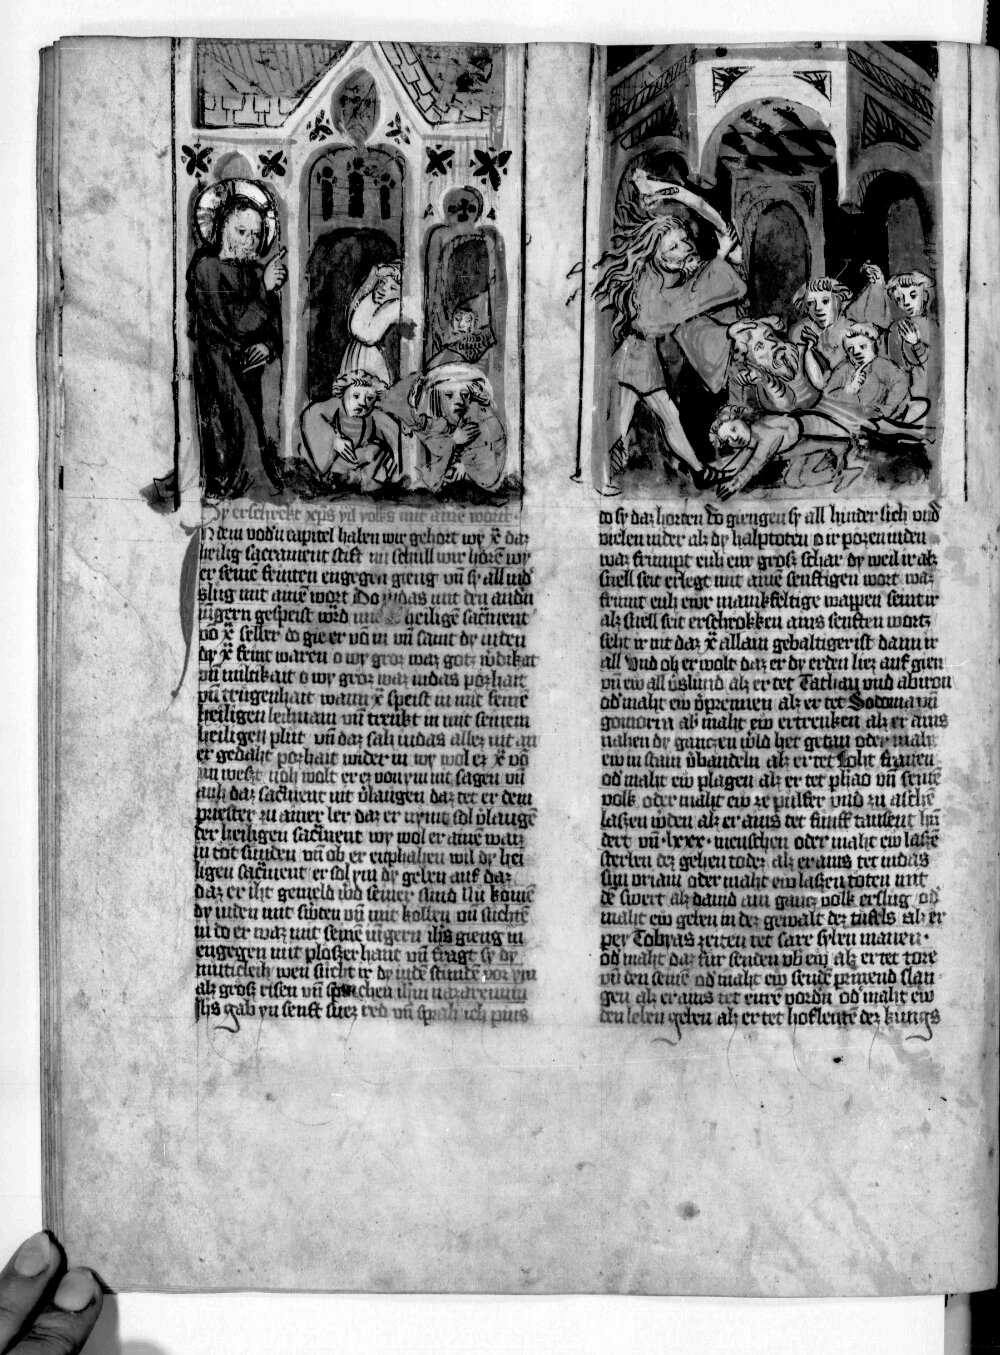 Hy erschrekt xp̄s vil volks mit aīne wort.
In dem vod'n capitel haben wir gehort wy x̄ daz
heilig sacrament stift nu schull wir hörē wy
er seinē feinten engegen gieng vn̄ sy all nid'
slug mit aīnē wort Do iudas mit den and'n
iūgern gespeist ward mit heiligē sac̄ment
vō x̄ selber do gie er vō im vn̄ samt dy iuden
dy x̄ feint waren o wy groz waz gotz
vn̄ miltikait o wy groz waz iudas pozhait
vn̄ trugenhait wann x̄ speist in mit seinē
heiligen leichnam vn̄ trenkt in mit seinem
heiligen plut vn̄ daz sah iudas allez nit an
er gedaht pozhait wider in wy wol er x̄ vō
im west noh wolt er ez von im nit sagen vn̄
auh daz sac̄ment nit v'laugen daz tet er dem
priester zu ainer ler daz er nymt sol v'laugē
der heiligen sac̄ment wy wol er ainē waiz
in tot sunden vn̄ ob er enphahen wil dy hei
ligen sac̄ment er sol ym dy geben auf daz
daz er iht gemeld w'd seiner sund Nu komē
dy iuden mit sw'ten vn̄ mit kolben vn̄ suchtē
in do er waz mit seinē iūgern ih̄s gieng in
engegen mit plozzer hant vn̄ fragt sy dy
mutickeih wen sucht ir dy iudē stundē vor ym
alz groz risen vn̄ sprachen ih̄m nazarenum
Jh̄s gab yn senft suez red vn̄ sprah ich pins
do sy daz horten do giengen sy all hinder sich vnd
vielen nider alz dy halptoten o ir pozen iuden
waz frumpt euh ewr groz schar dy weil ir alz
snell seit erlegt mit ainē senftigen wort waz
frumt euh ewr manikfeltige wappen seint ir
alz snell seit erschrokken ains senften wortz
seht ir nit daz x̄ allain gebaltiger ist dann ir
all Vnd ob er wolt daz er dy erden liez auf gien
vn̄ ew all v'slund alz er tet Tathan vnd abiron
od' maht ew v'prennen alz er tet Sodoma vn̄
gomorra ab maht ew ertrenken alz er ains
nahen dy gantzen w'ld het getan oder maht
ew in stain v'bandeln alz er tet Loht frawen
od' maht ew plagen alz er tet ph'ao vn̄ seinē
volk oder maht ew ze pulfer vnd zu aschē
lazzen w'den alz er ains tet funff tausent hū
dert vn̄ .lxxx. menschen oder maht ew lazzē
sterben dez gehen todez alz er ains tet iudas
sun vriam oder maht ew lazzen töten mit
dē swert alz dauid ain gancz volk erslug od'
maht ew geben in dez gewalt dez tiufels alz er
pey Tobyas zeiten tet sare syben mannen.
od' maht daz für senden vb' ew alz er tet tore
vn̄ den seinē od' maht ew sendē prinend slan
gen alz er ains tet eurē vordn̄ od' maht ew
den leben geben alz er tet hofleutē dez kungs